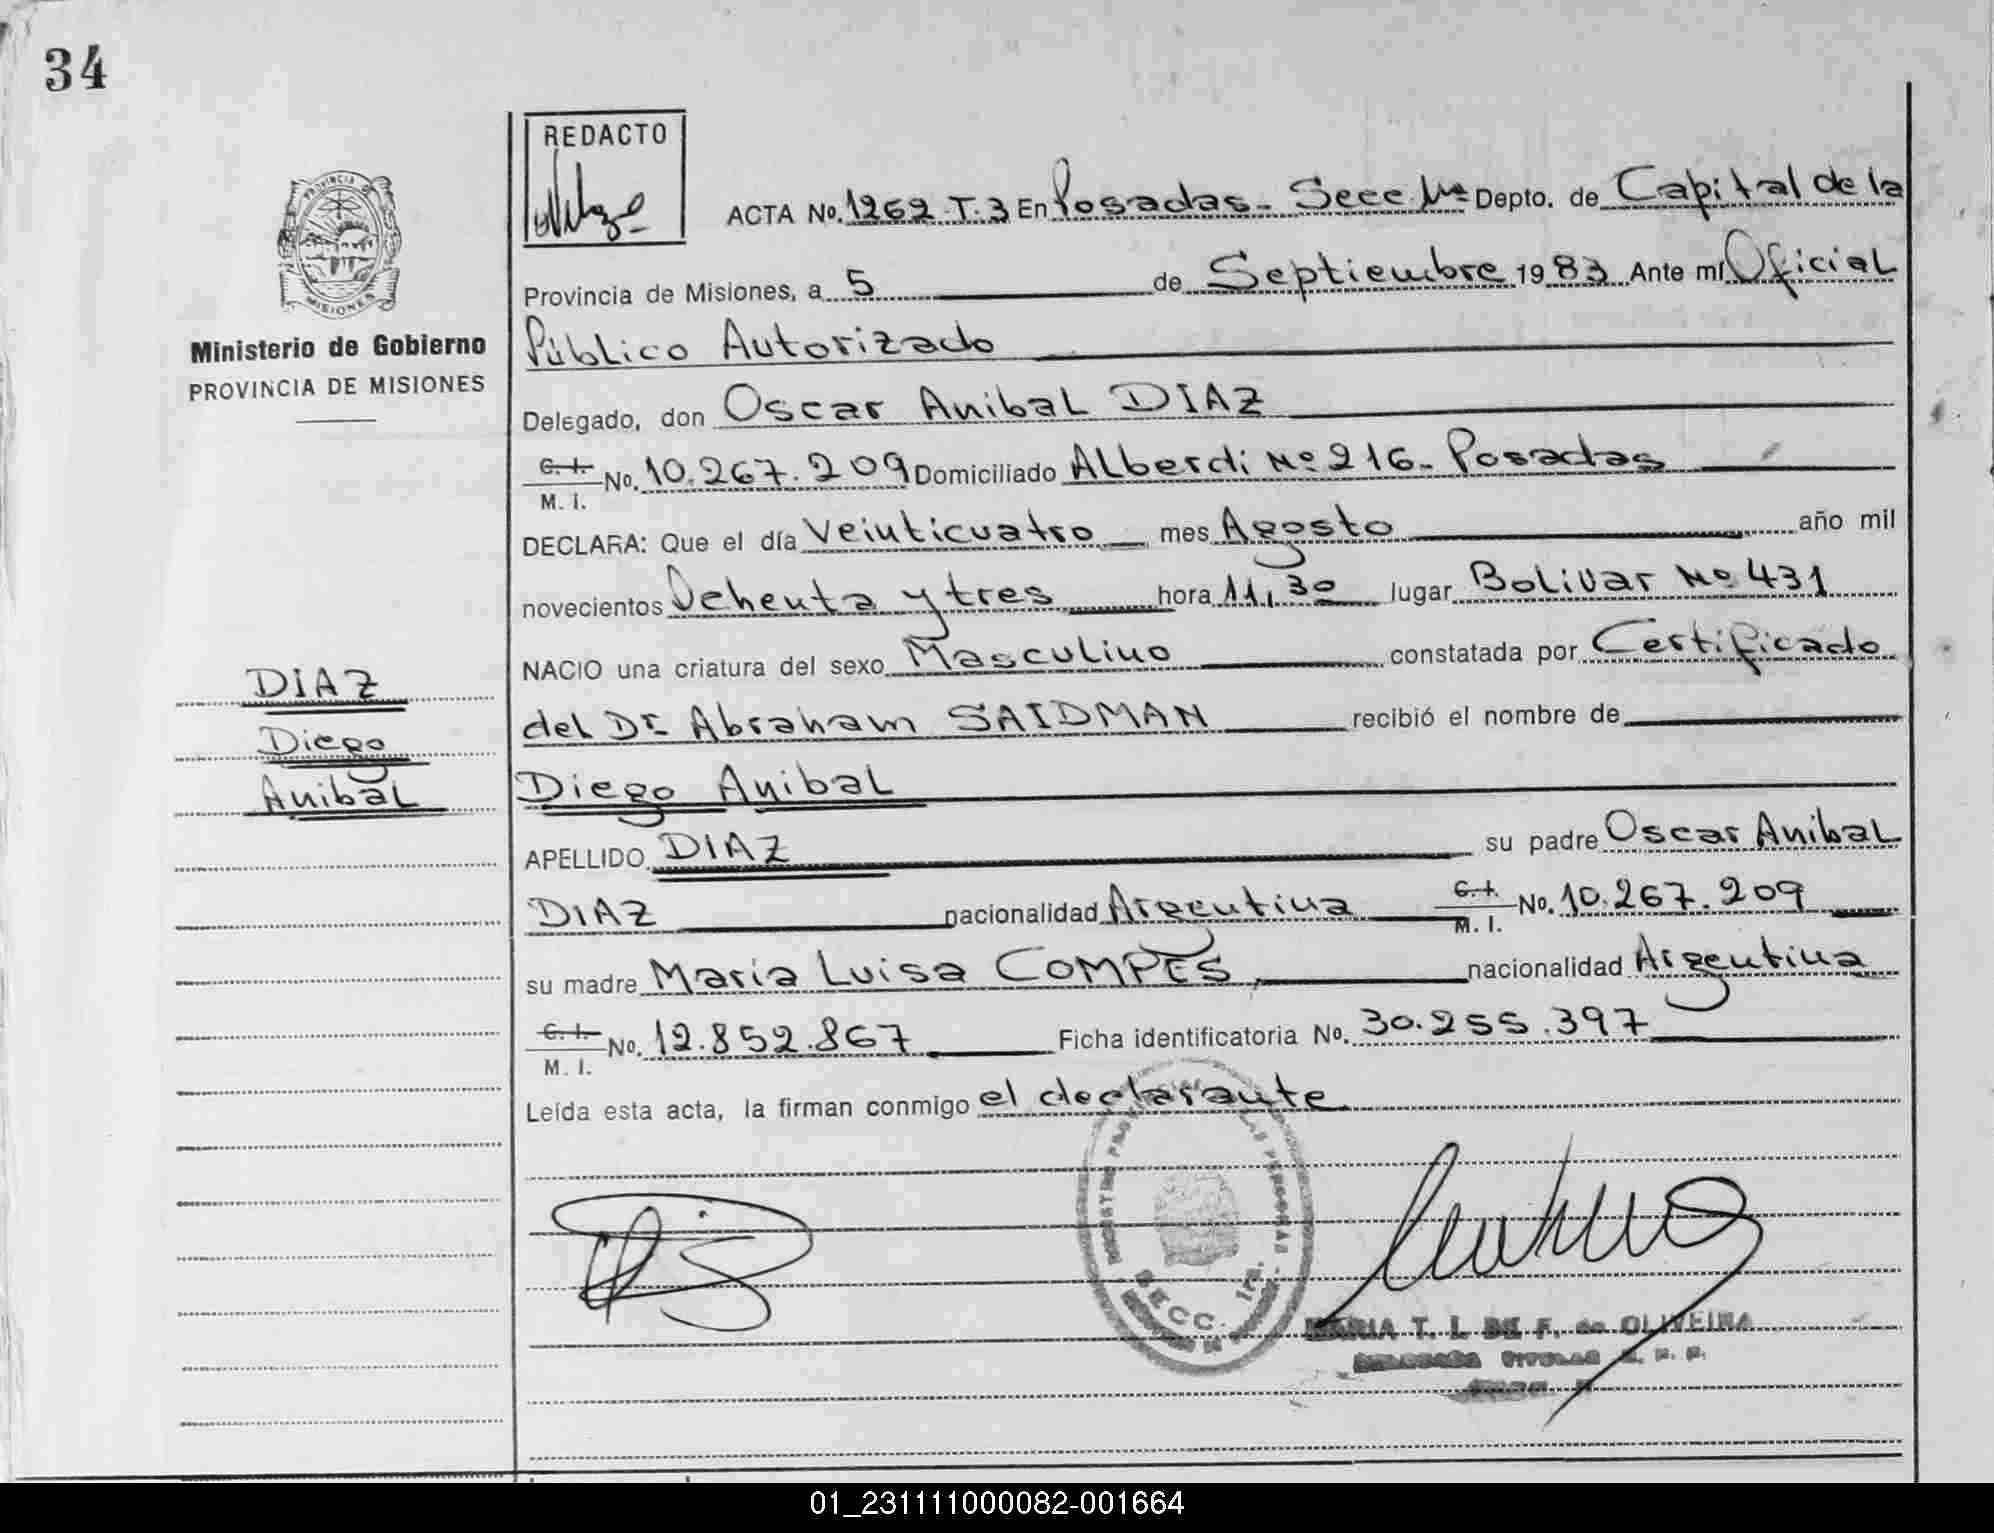 34
REDACTO
ACTA No. 1262 T. 3 En Posadas - Secc 1ra Depto. de Capital de la
Provincia de Misiones, a 5 de Septiembre 1983 Ante mí Oficial
Público Autorizado
Delegado, don Oscar Anibal DIAZ
C. I.
M. I. No. 10.267.209 Domiciliado Alberdi Nº 216 - Posadas
DECLARA: Que el día Veinticuatro mes Agosto año mil
novecientos Ochenta y tres hora 11,30 lugar Bolivar Nº 431
NACIO una criatura del sexo Masculino constatada por Certificado
del Dr. Abraham SAIDMAN recibió el nombre de
Diego Anibal
APELLIDO DIAZ su padre Oscar Anibal
DIAZ nacionalidad Argentina C. I.
M. I. No. 10.267.209
su madre María Luisa COMPES, nacionalidad Argentina
C. I.
M. I. No. 12.852.867 Ficha identificatoria No. 30.255.397
Leída esta acta, la firman conmigo el declarante
PROVINCIA DE
MISIONES
Ministerio de Gobierno
PROVINCIA DE MISIONES
DIAZ
Diego
Anibal
REGISTRO LAS PERSONAS
1ra.
MARIA T. I. DE F. de OLIVEIRA
TITULAR
01_231111000082-001664